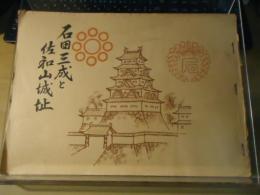 石田三成と
佐和山城址